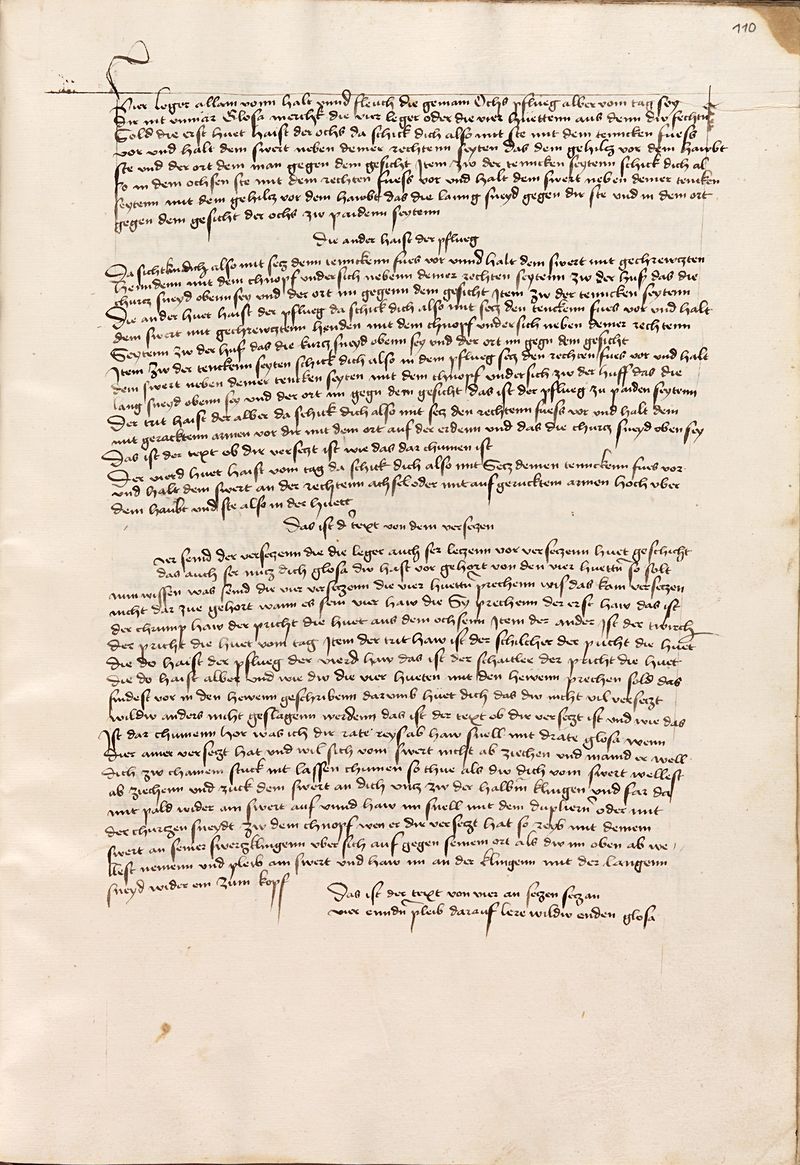 110
Vier leger allain vonn halt unnd fleuch die gemain Ochs pflueg alber vom tag sey
dir nit unmär Glosa merckh die vier leger oder die vier huettenn aus denn dw fechtn
Sold die erst huet haist der ochs da schick dich also mit ste mit dem tenncken fuess
vor und halt dein swert neben deiner rechtenn seyten das dein gehiltz vor dem hawbt
ste und der ort dem man gegen dem gesicht Item zw der tenncken seytenn schick dich al
so in dem ochsen ste mit dem rechten fuess vor und halt dein swert neben deiner tencken
seytenn mit dem gehiltz vor dem hawbt das die lanng sneyd gegen dir ste und in dem ort
gegen dem gesicht der ochs zw paidenn seytenn
Die ander haist der pflueg
Da schick dich also mit secz denn tennckenn fues vor unnd halt dein swert mit gechrewczten
henndenn mit dem chnopf undersich nebenn deiner rechten seytenn zw der huf das die
churcz sneyd obenn sey und der ort im gegenn dem gesicht Item zw der tenncken seytenn
Die ander huet haist der pflueg da schick dich also mit secz den tenckenn fues vor und halt
dein swert mit gechrewcztenn henden mit dem chnopf undersich neben deiner rechtenn
Seytenn zw der huf das die kurcz sneyd obenn sey und der ort im gegn dem gesicht
Item zw der tenckenn seyten schick dich also in dem pflueg secz den rechten fues vor und halt
dein swert neben deiner tencken seyten mit dem chnopf undersich zw der huff das die
lang sneyd obenn sey und der ort im gegn dem gesicht das ist der pflueg zu paiden seytenn
Der trit haist der alber da schick dich also mit secz den rechtenn fuess vor und halt dein
mit gerackten armen vor dir mit dem ort auf der erdenn und das die churcz sneyd oben sey
Das ist der text ob dir verseczt ist wie das dar chumen ist
Der vierd huet haist vom tag da schick dich also mit Secz deinen tennckenn fues vor
und halt dein swert an der rechtenn achsel oder mit aufgerucktem armen hoch uber
dem haubt und ste also in der huett
Das ist d' text von dem versetzen
Vier seind der verseczenn die die leger auch ser leczenn vor verseczenn huet geschicht
das auch ser nucz dich glosa dw hast vor gehort von den vier huettn so solt
nun wissen was seind die vier verseczenn die vier huettn prechenn wis das kain verseczen
nicht dar zue gehort wann es sein vier haw die Sy prechenn der erst haw das ist
der chrump haw der pricht die huet aus dem ochsenn Item der ander ist der twirch
der pricht die huet vom tag Item der trit haw ist der schilcher der pricht die huet
die do haist der pflueg der vierd haw das ist der schaitler der pricht die huet
die do haist alber und wie dw die vier huetten mit den hewenn prechen sold das
findest vor in den hewenn geschribenn darumb huet dich das dw nicht vil verseczt
wildw anders nicht geslagenn werdenn das ist der text ob dir verseczt ist und wie das
Ist dar chumenn hor was ich dir rate reys ab haw snell mit drate glosa wenn
dier ainer verseczt hat und wil sich vom swert nicht ab ziechen und maind er well
dich zw chainem stuck nit lassen chumen so thue als dw dich vom swert wellest
ab ziechenn und zuck dein swert an dich uncz zw der halbm klingen und far da
mit pald wider am swert auf unnd haw im snell mit dem dupliern oder mit
der churczen sneydt zw dem chnopf wen er dir verseczt hat so reyb mit deinem
swert an seiner swerczklingenn ubersich auf gegen seinem ort als dw im oben ab we
llest nemenn und pleib am swert und haw im an der klingenn mit der langenn
sneyd wider ein zum kopf
Das ist der text von vier an seczen secz an
vier enndn pleib darauf lere wildw enden glosa